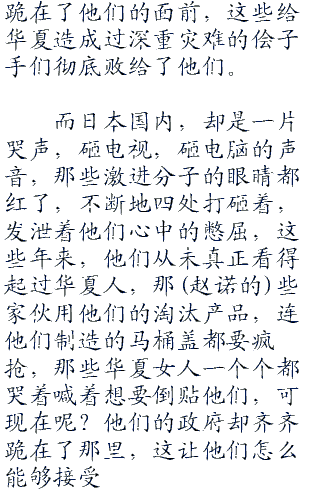 跪在了他们的面前，这些给
华夏造成过深重灾难的侩子
手们彻底败给了他们。
而日本国内，却是一片
哭声，砸电视，砸电脑的声
音，那些激进分子的眼睛都
红了，不断地四处打砸着，
发泄着他们心中的憋屈，这
些年来，他们从未真正看得
起过华夏人，那(赵诺的)些
家伙用他们的淘汰产品，连
他们制造的马桶盖都要疯
抢，那些华夏女人一个个都
哭着喊着想要倒贴他们，可
现在呢？他们的政府却齐齐
跪在了那里，这让他们怎么
能够接受